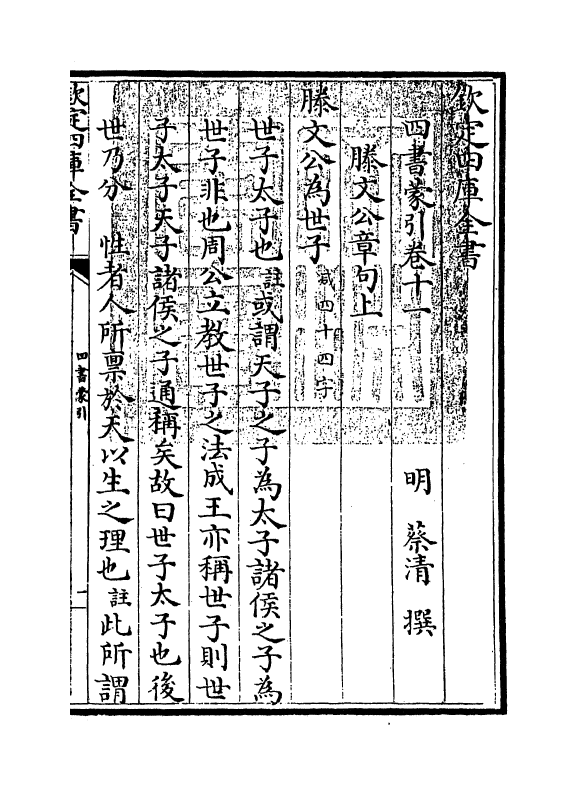 欽定四庫全書
四書蒙引卷十一
明 蔡清 撰
滕文公章句上
滕文公為世子 減四十四字
世子太子也註或謂天子之子為太子諸侯之子為
世子非也周公立教世子之法成王亦稱世子則世
子太子天子諸侯之子通稱矣故曰世子太子也後
世乃分 性者人所禀於天以生之理也註此所謂
欽定四庫全書
四書蒙引